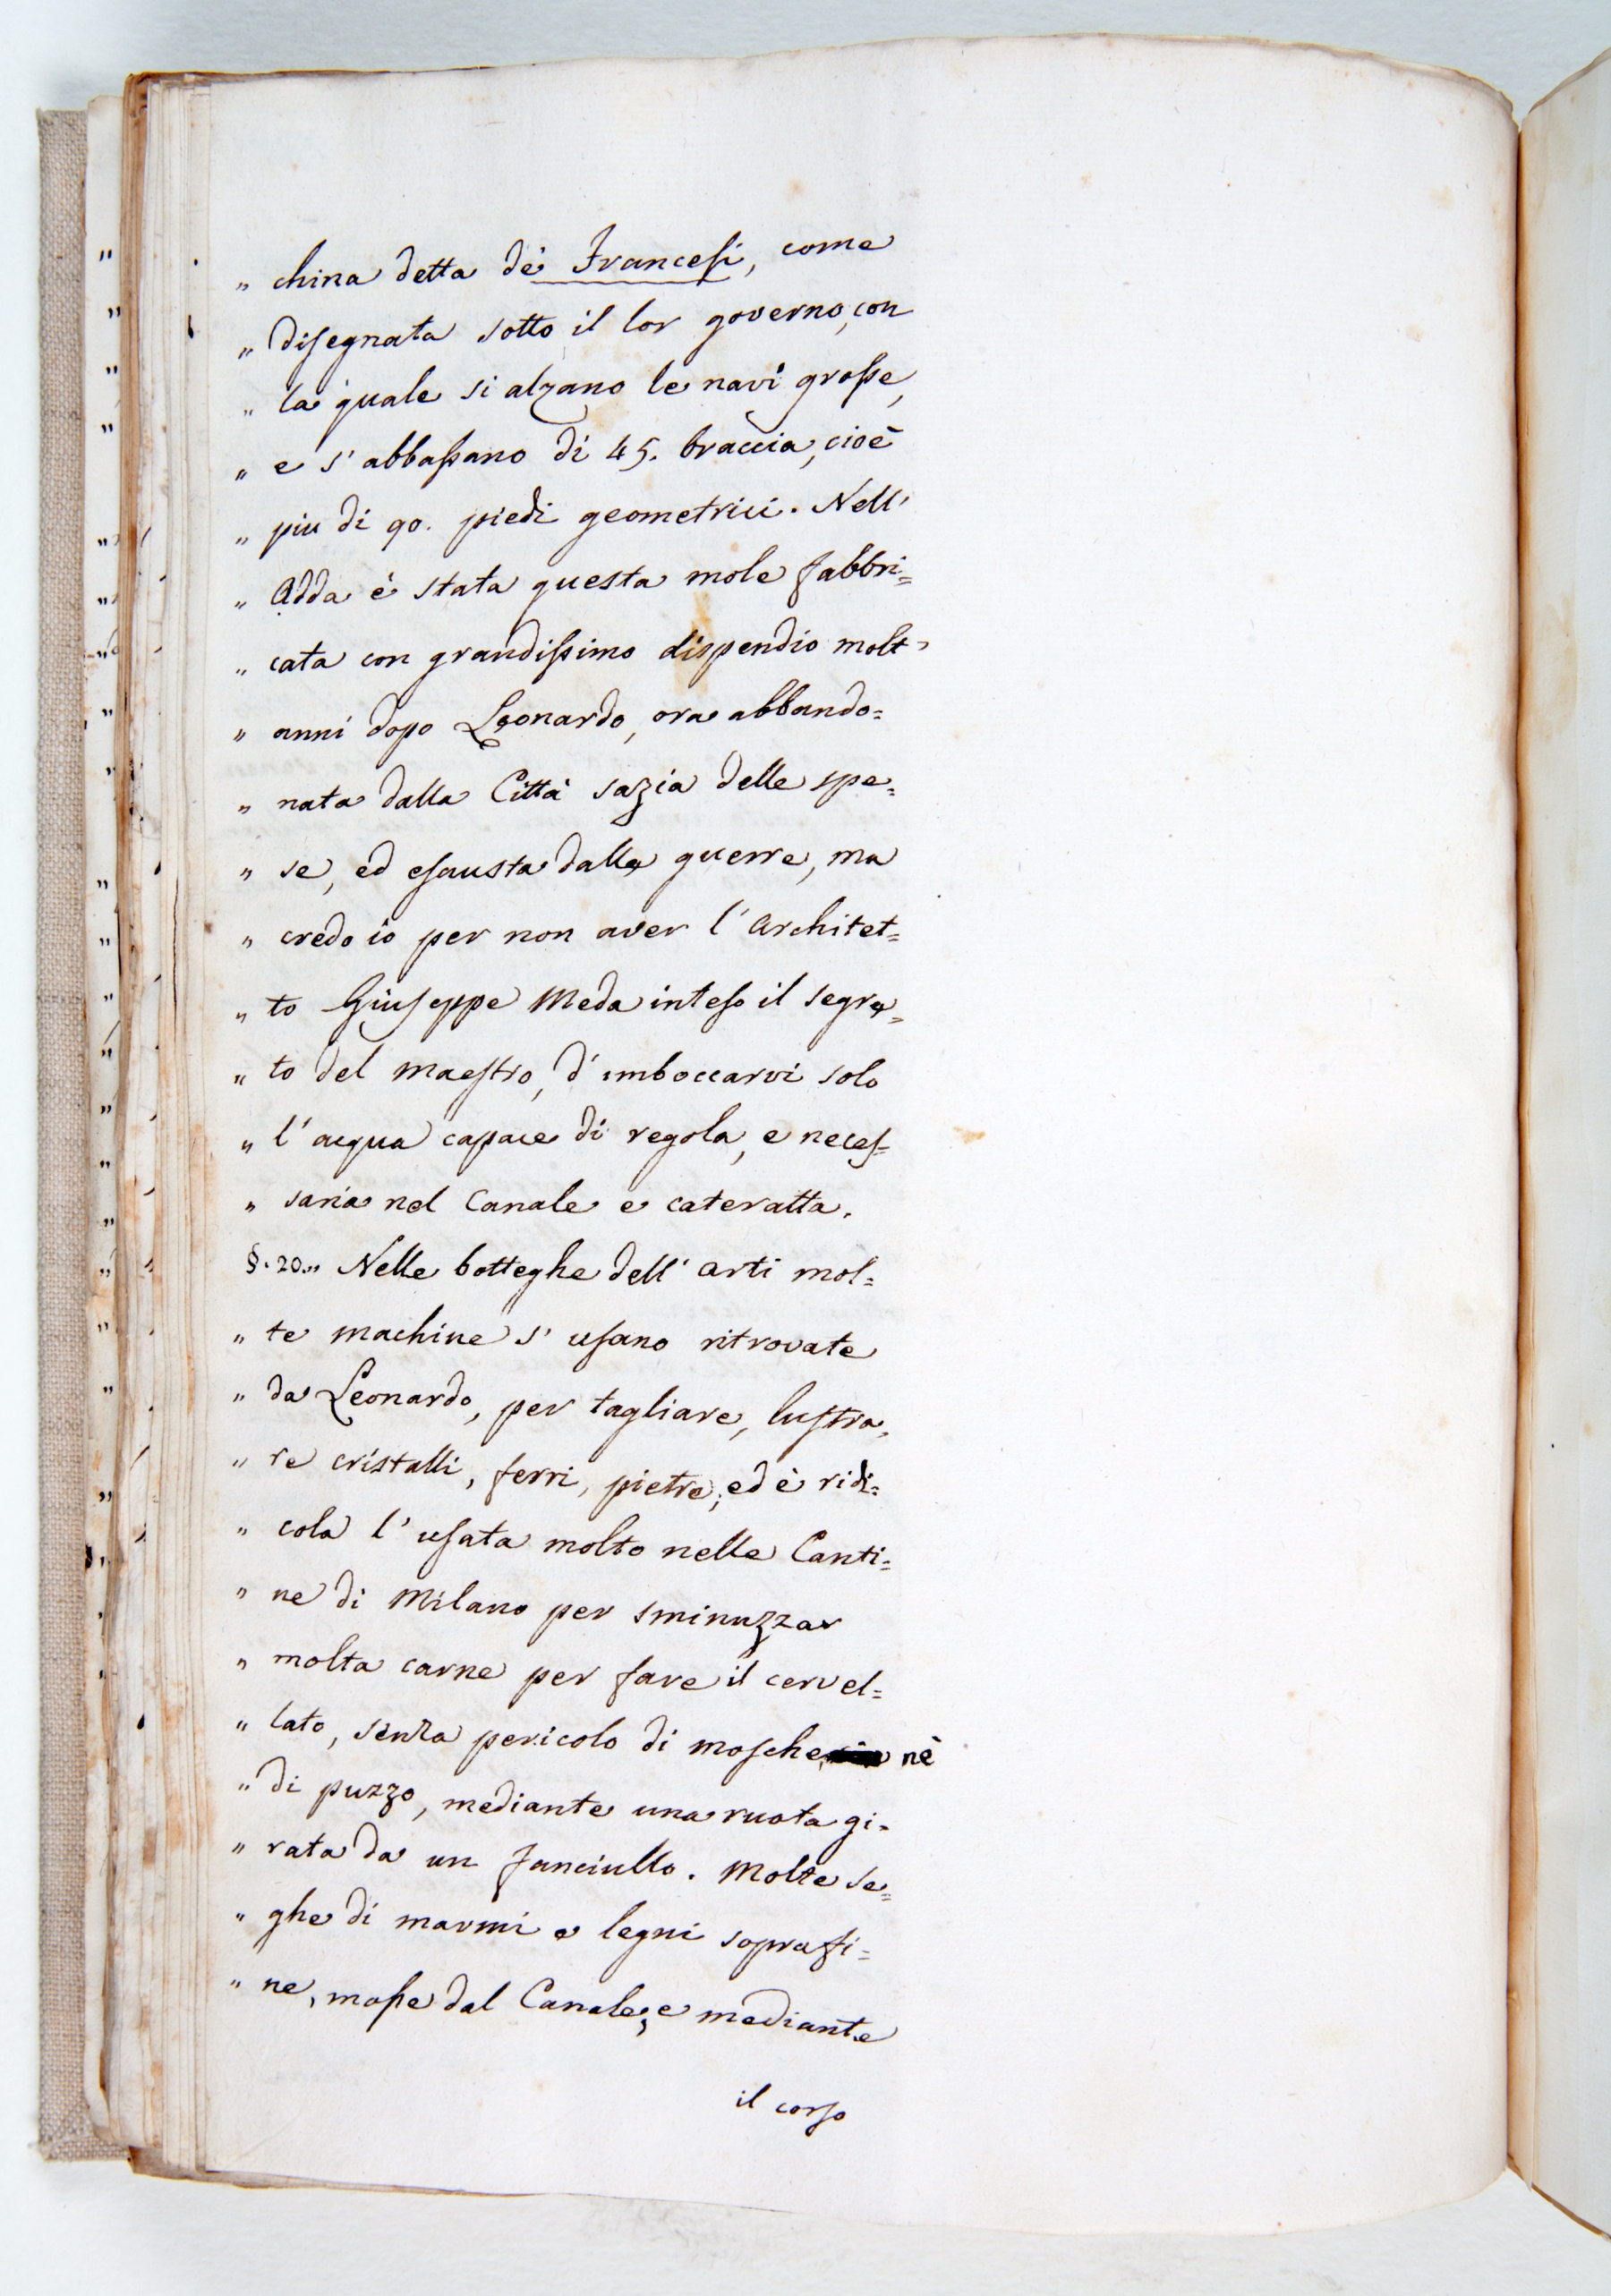 „ china detta dè Francesi, come
„ disegnata sotto il lor governo, con
„ la quale si alzano le navi grosse,
„ e s' abbassano di 45. braccia, cioè
„ piu di 90. piedi geometrici. Nell'
„ Adda è stata questa mole fabbri=
„ cata con grandissimo dispendio molt'
„ anni dopo Leonardo, ora abbando=
„ nata dalla Città sazia delle spe=
„ se, ed esausta dalle guerre, ma
„ credo io per non aver l' Architet=
„ to Giuseppe Meda inteso il segre=
„ to del Maestro, d' imboccarvi solo
„ l' acqua capace di regola, e neces=
„ saria nel Canale e cateratta.
§. 20. „ Nelle botteghe dell' arti mol=
„ te machine s' usano ritrovate
„ da Leonardo, per tagliare, lustra=
„ re cristalli, ferri, pietre; ed è ridi=
„ cola l' usata molto nelle Canti=
„ ne di Milano per sminuzzar
„ molta carne per fare il cervel=
„ lato, senza pericolo di mosche nè
„ di puzzo, mediante una ruota gi=
„ rata da un fanciullo. Molte se=
„ ghe di marmi e legni soprafi=
„ ne, mosse dal Canale; e mediante
il corso